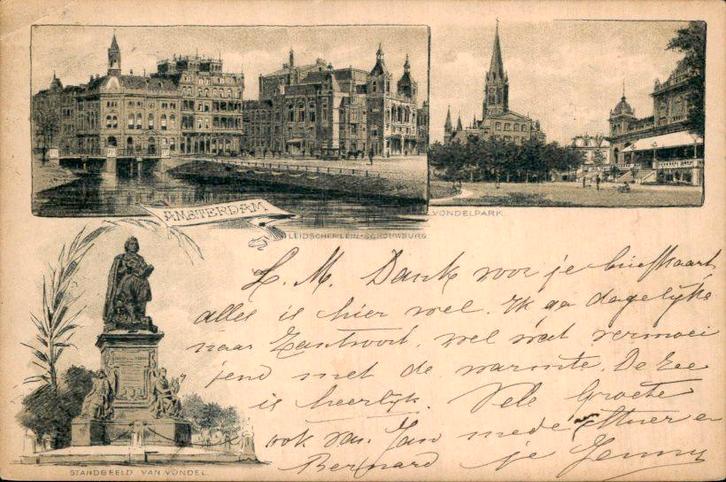 AMSTERDAM
LEIDSCHEPLEIN-SCHOUWBURG
VONDELPARK
L. M. Dank voor je briefkaart
alles is hier wel. Ik ga dagelijks
naar Zantvoort, wel wat vermoei
jend met de warmte. De Zee
is heerlijk. Vele Groete
ook van Jan mede
Bernard je Jenny
STANDBEELD VAN VONDEL